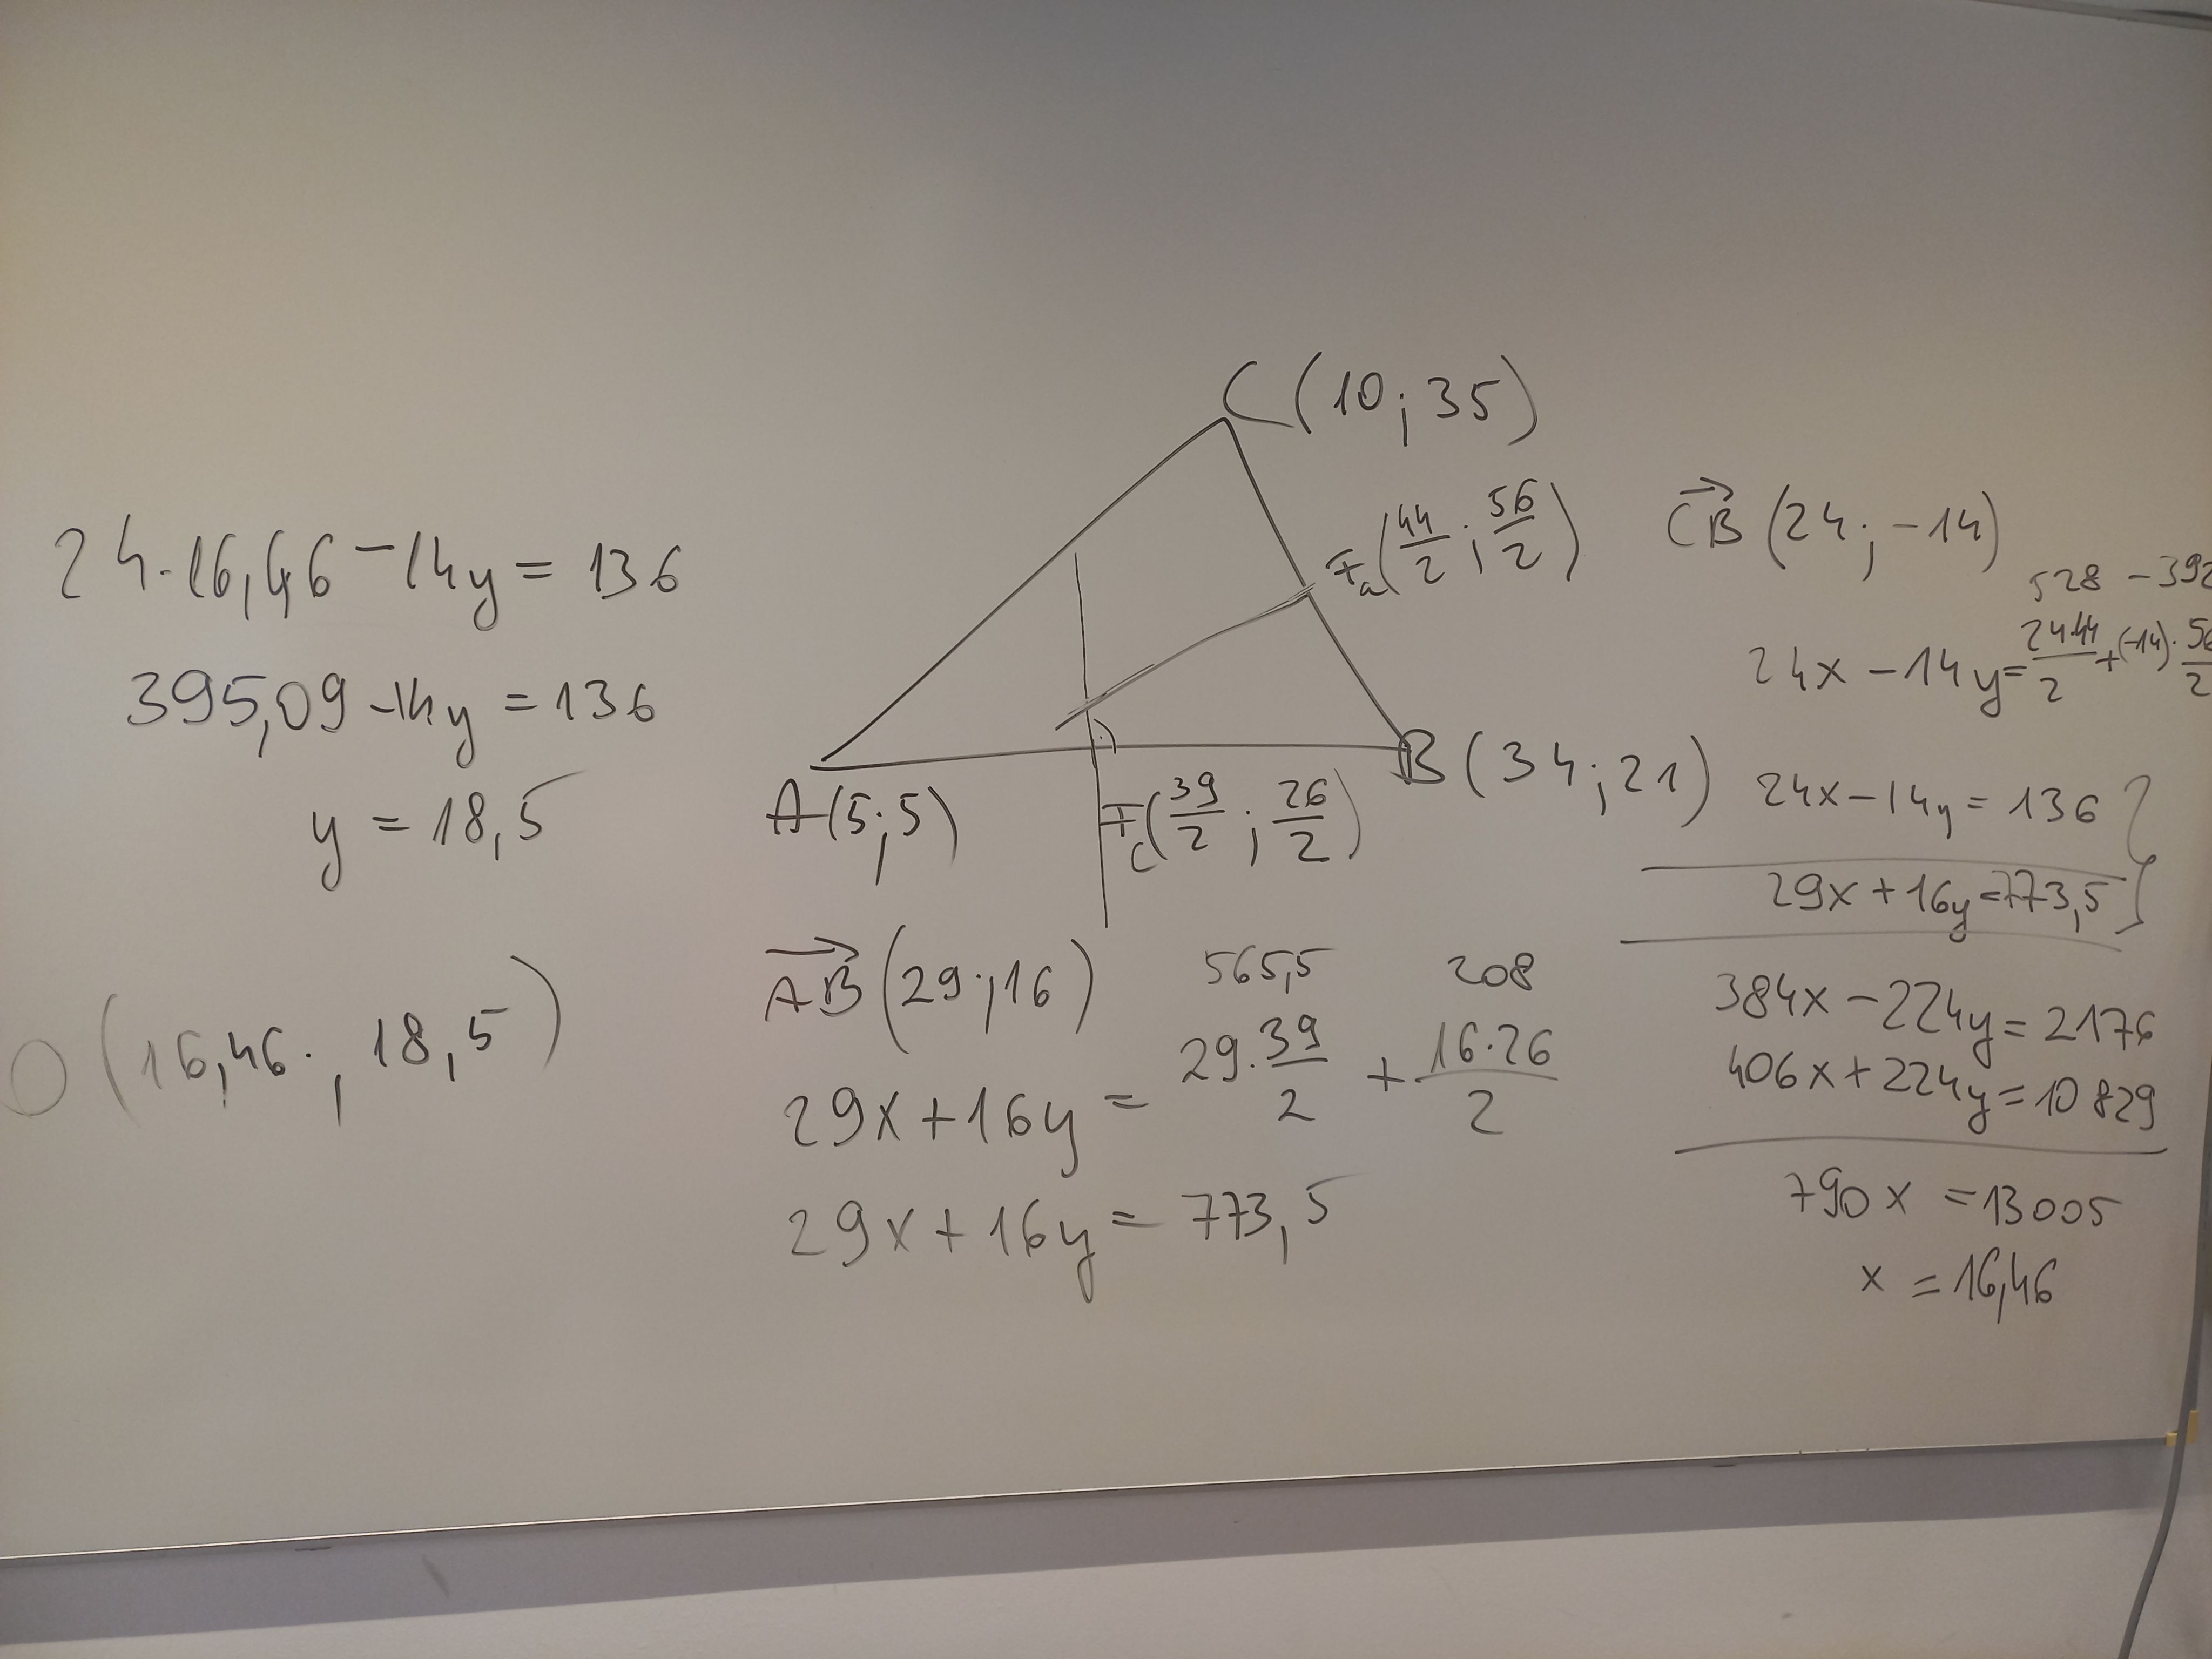 24·16,46 - 14y = 136
395,09 - 14y = 136
y = 18,5
O (16,46 ; 18,5)
C (10 ; 35)
Fa (44/2 ; 56/2)
A (5 ; 5)
B (34 ; 21)
Fc (39/2 ; 26/2)
AB (29 ; 16)
565,5 208
29x + 16y = 29·39/2 + 16·26/2
29x + 16y = 773,5
CB (24 ; -14)
528 - 392
24x - 14y = 24·44/2 + (-14)·56/2
24x - 14y = 136
29x + 16y = 773,5
384x - 224y = 2176
406x + 224y = 10829
790x = 13005
x = 16,46